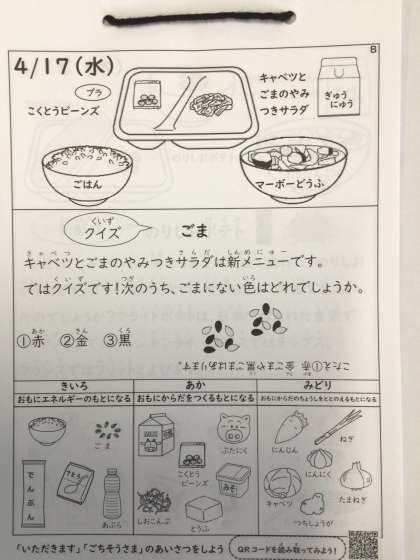 B
4/17(水)
プラ
こくとうビーンズ
キャベツと
ごまのやみ
つきサラダ
ぎゅう
にゅう
ごはん
マーボーどうふ
くいず
クイズ
ごま
キャベツとごまのやみつきサラダは新メニューです。
ではクイズです!次のうち、ごまにない色はどれでしょうか。
①赤 ②金 ③黒
こたえ ①赤 金ごまや黒ごまはあります。
きいろ
おもにエネルギーのもとになる
あか
おもにからだをつくるもとになる
みどり
おもにからだのちょうしをととのえるもとになる
ごま
でんぷん
さとう
あぶら
ぶたにく
こくとう
ビーンズ
みそ
しおこんぶ
とうふ
にんじん
ねぎ
にんにく
キャベツ
たまねぎ
つちしょうが
「いただきます」「ごちそうさま」のあいさつをしよう
QRコードを読み取ってみよう!